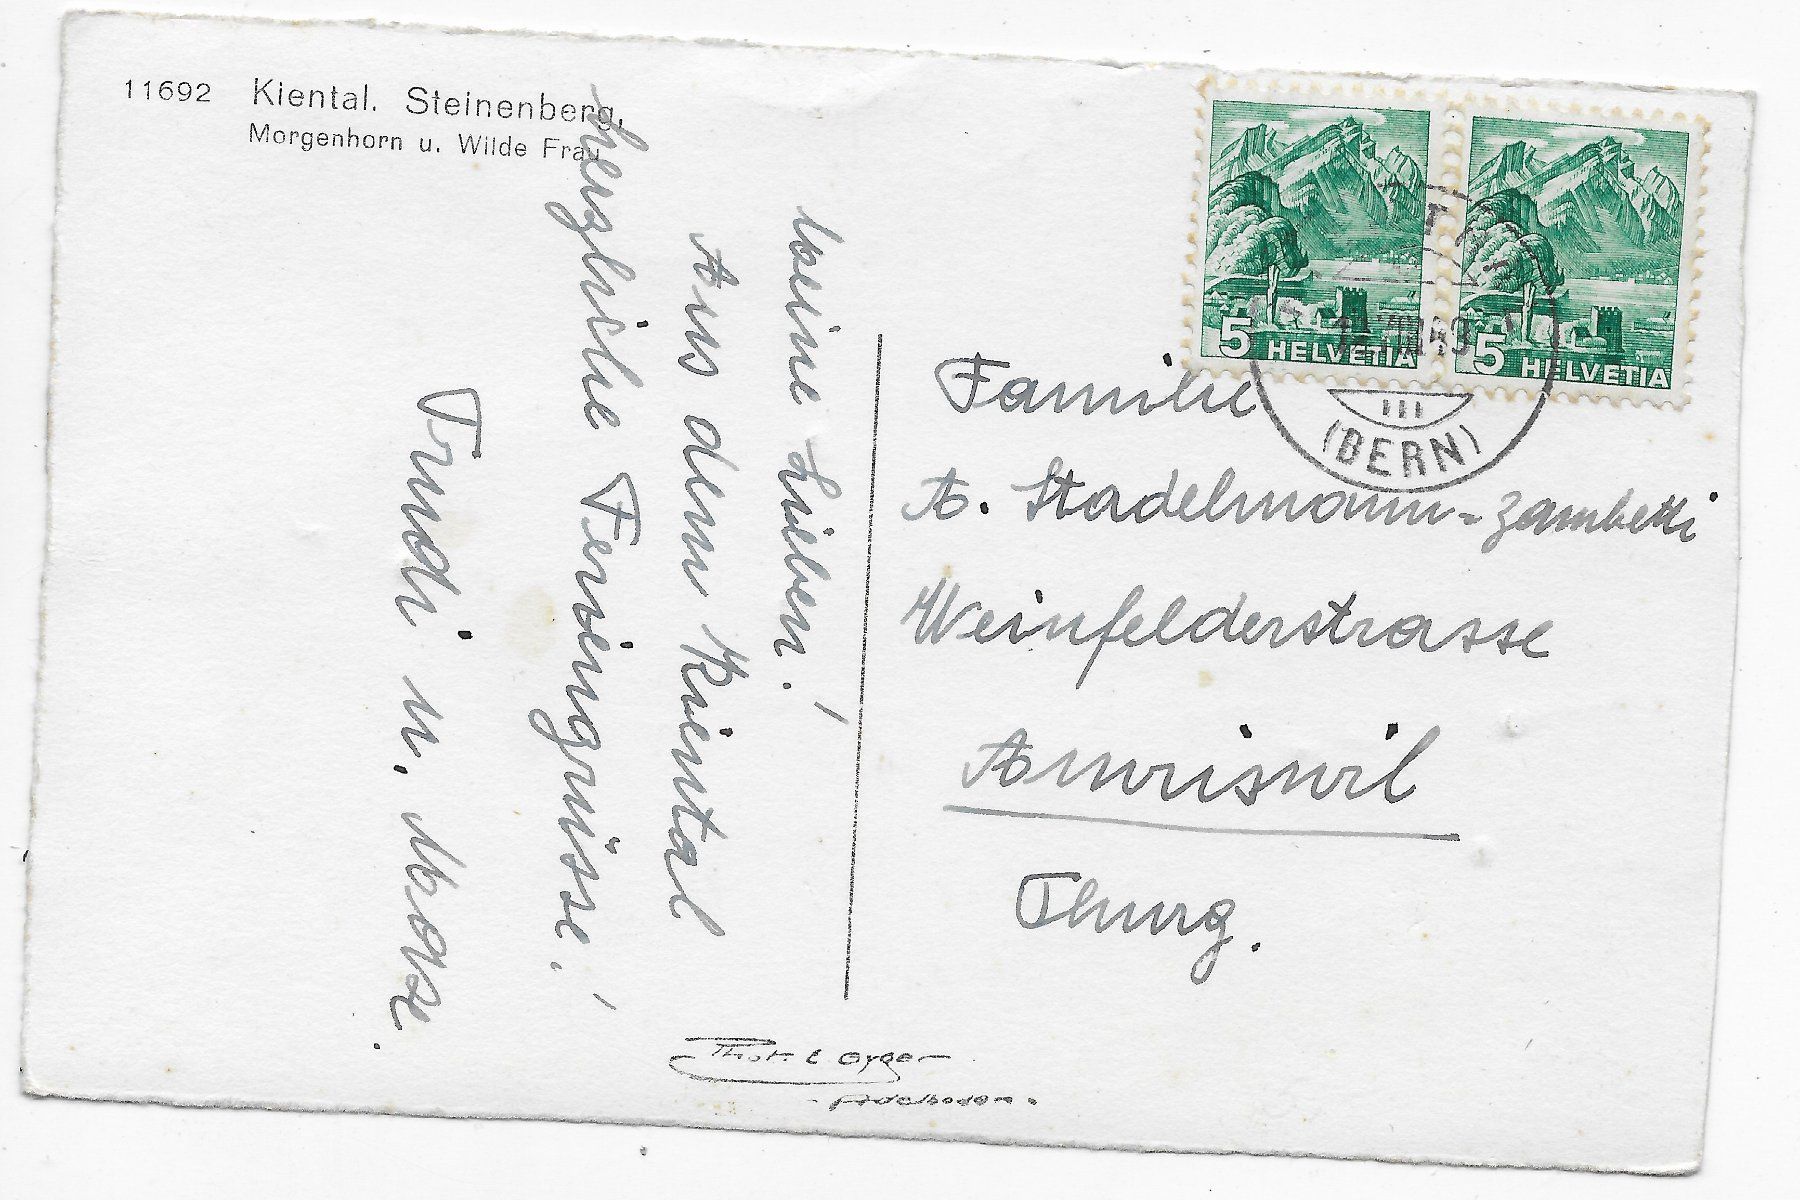 11692 Kiental. Steinenberg,
Morgenhorn u. Wilde Frau
Meine Lieben!
Aus dem Kiental
herzliche Feriengrüsse!
Trudi u. Rose.
5 HELVETIA
5 HELVETIA
(BERN)
Familie
A. Stadelmann-Zambetti
Weinfelderstrasse
Amriswil
Thurg.
Phot. E. Gyger
Adelboden.